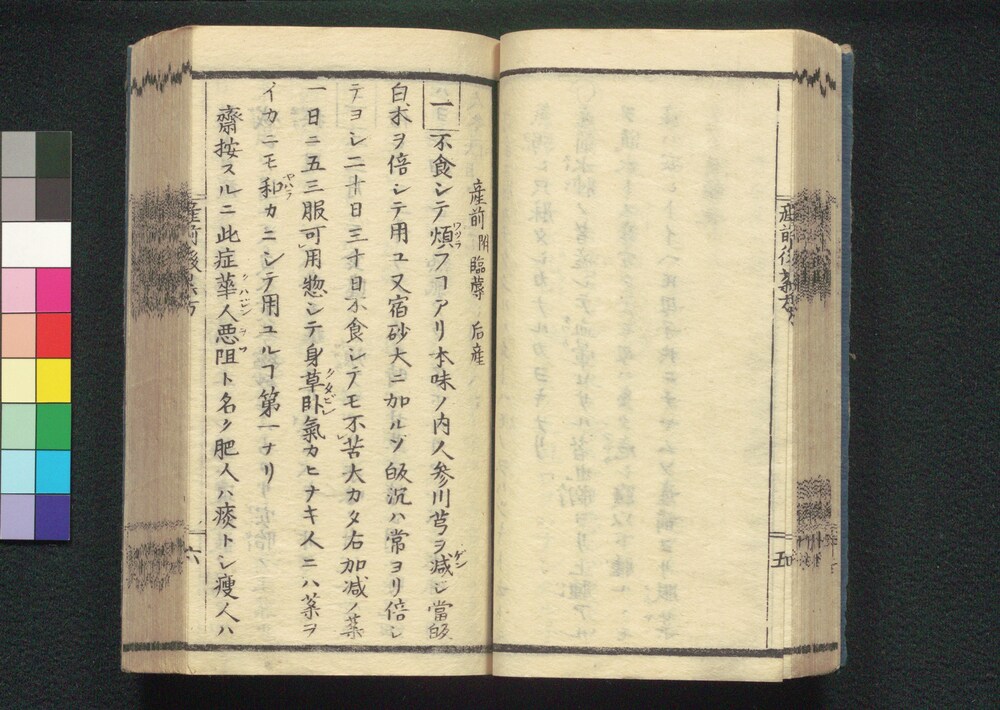 産前後薬方
五
産前 附臨蓐 后産
一 不食シテ煩フヿアリ本味ノ内人参川芎ヲ減シ當皈
白朮ヲ倍シテ用ユ又宿砂大ニ加ルゾ皈沉ハ常ヨリ倍シ
テヨシ二十日三十日不食シテモ不苦大カタ右加減ノ薬
一日ニ五三服可用惣シテ身草卧氣カヒナキ人ニハ薬ヲ
イカニモ和カニシテ用ユルヿ第一ナリ
齋按スルニ此症華人悪阻ト名ク肥人ハ痰トシ瘦人ハ
産前後薬方
六